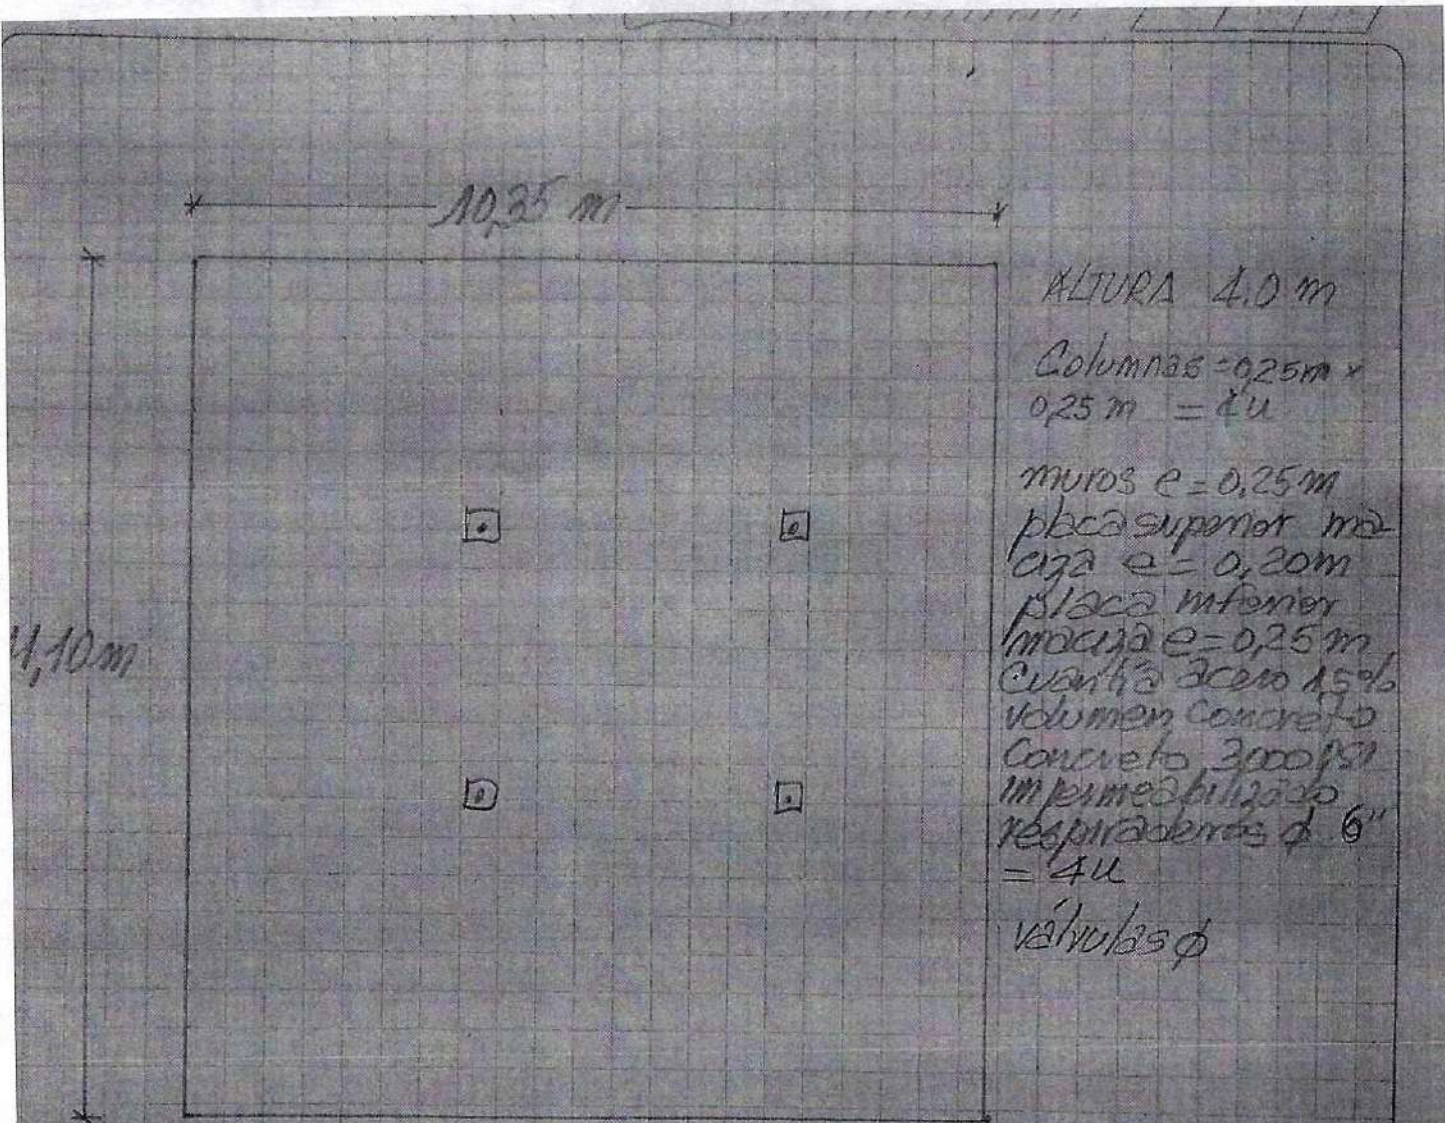 10,35 m
ALTURA 4.0 m
Columnas = 0,25m x
0,25 m = 4u
muros e = 0,25m
placa superior ma-
ciza e = 0,20m
placa inferior
maciza e = 0,25m
Cuantía acero 1,5%
volumen Concreto
Concreto 3000 PSI
impermeabilizado
respiraderos ϕ 6"
= 4u
válvulas ϕ